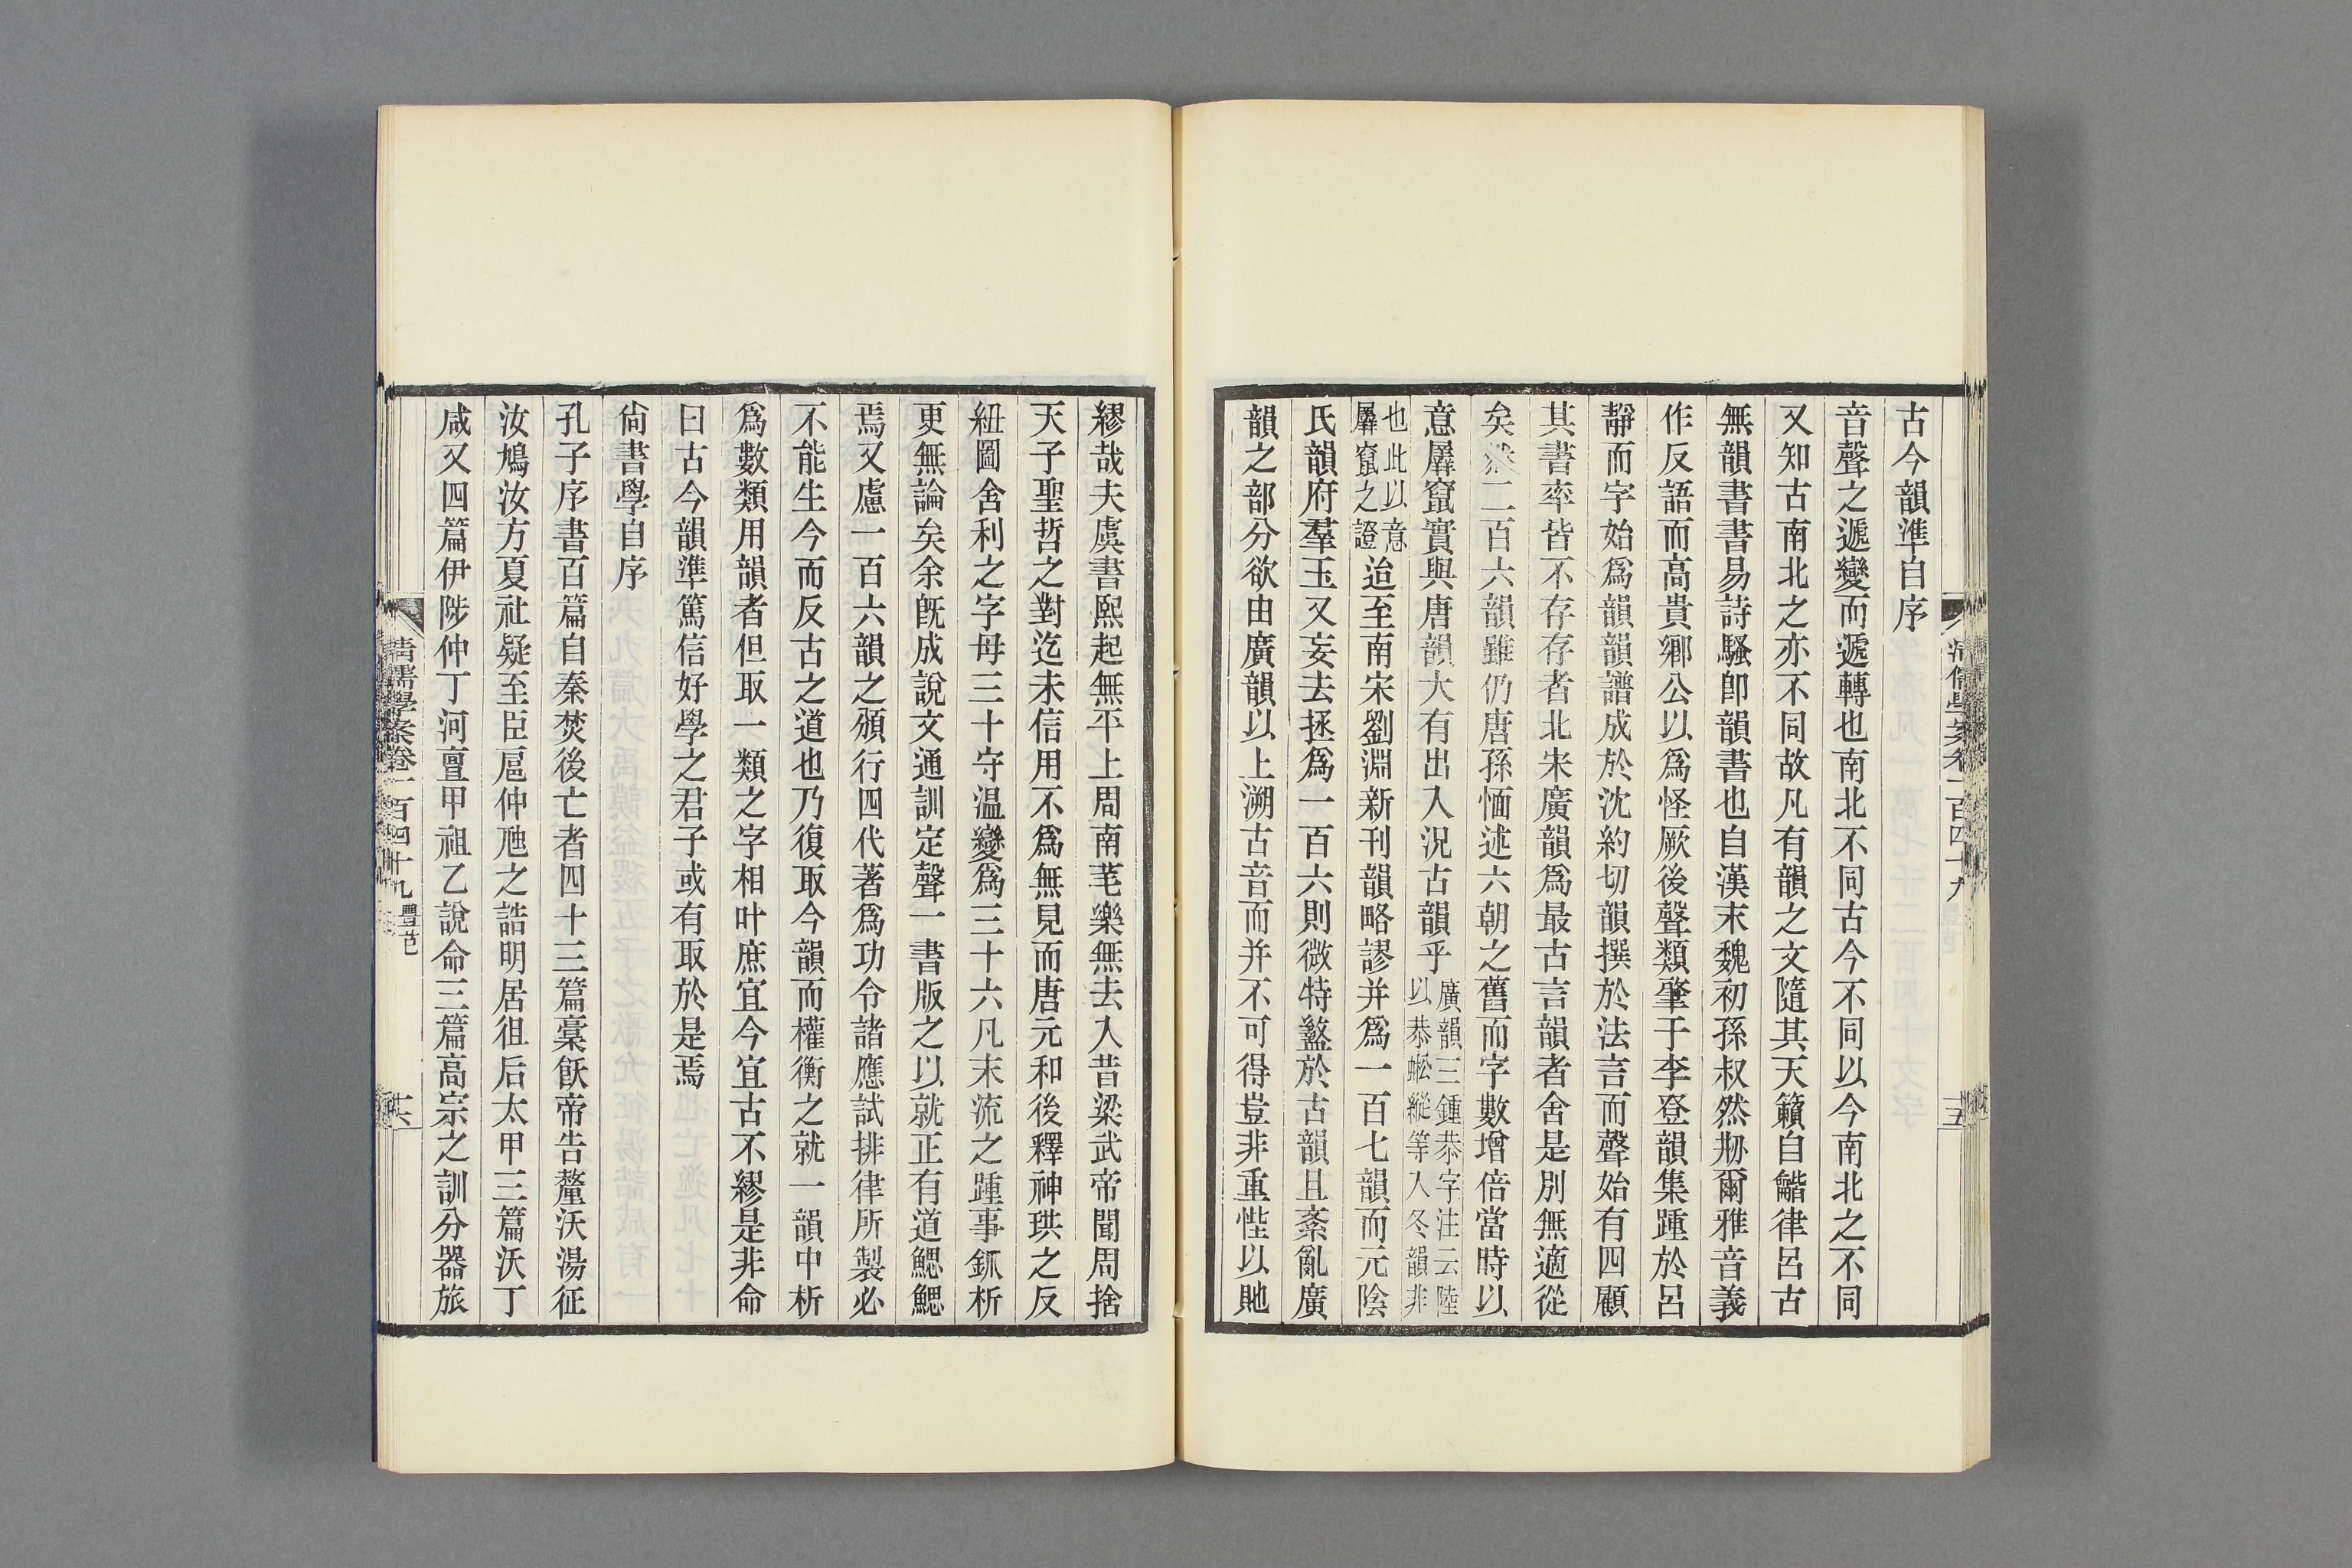 古今韻準自序
音聲之遞變而遞轉也南北不同古今不同以今南北之不同
又知古南北之亦不同故凡有韻之文隨其天籟自龤律呂古
無韻書書易詩騷卽韻書也自漢末魏初孫叔然剏爾雅音義
作反語而高貴鄉公以爲怪厥後聲類肇于李登韻集踵於呂
靜而字始爲韻韻譜成於沈約切韻撰於法言而聲始有四顧
其書率皆不存存者北宋廣韻爲最古言韻者舍是別無適從
矣然二百六韻雖仍唐孫愐述六朝之舊而字數增倍當時以
意羼竄實與唐韻大有出入況古韻乎廣韻三鍾恭字注云陸以恭蜙縱等入冬韻非
也此以意羼竄之證迨至南宋劉淵新刊韻略謬并爲一百七韻而元陰
氏韻府羣玉又妄去拯爲一百六則微特盭於古韻且紊亂廣
韻之部分欲由廣韻以上溯古音而并不可得豈非重悂以貤
繆哉夫虞書熙起無平上周南芼樂無去入昔梁武帝聞周捨
天子聖哲之對迄未信用不爲無見而唐元和後釋神珙之反
紐圖舍利之字母三十守溫變爲三十六凡末流之踵事鈲析
更無論矣余旣成說文通訓定聲一書版之以就正有道鰓鰓
焉又慮一百六韻之頒行四代著爲功令諸應試排律所製必
不能生今而反古之道也乃復取今韻而權衡之就一韻中析
爲數類用韻者但取一類之字相叶庶宜今宜古不繆是非命
曰古今韻準篤信好學之君子或有取於是焉
尙書學自序
孔子序書百篇自秦焚後亡者四十三篇稾飫帝告釐沃湯征
汝鳩汝方夏社疑至臣扈仲虺之誥明居徂后太甲三篇沃丁
咸乂四篇伊陟仲丁河亶甲祖乙說命三篇高宗之訓分器旅
清儒學案卷一百四十九 豐芑
十六
清儒學案卷一百四十九
十五